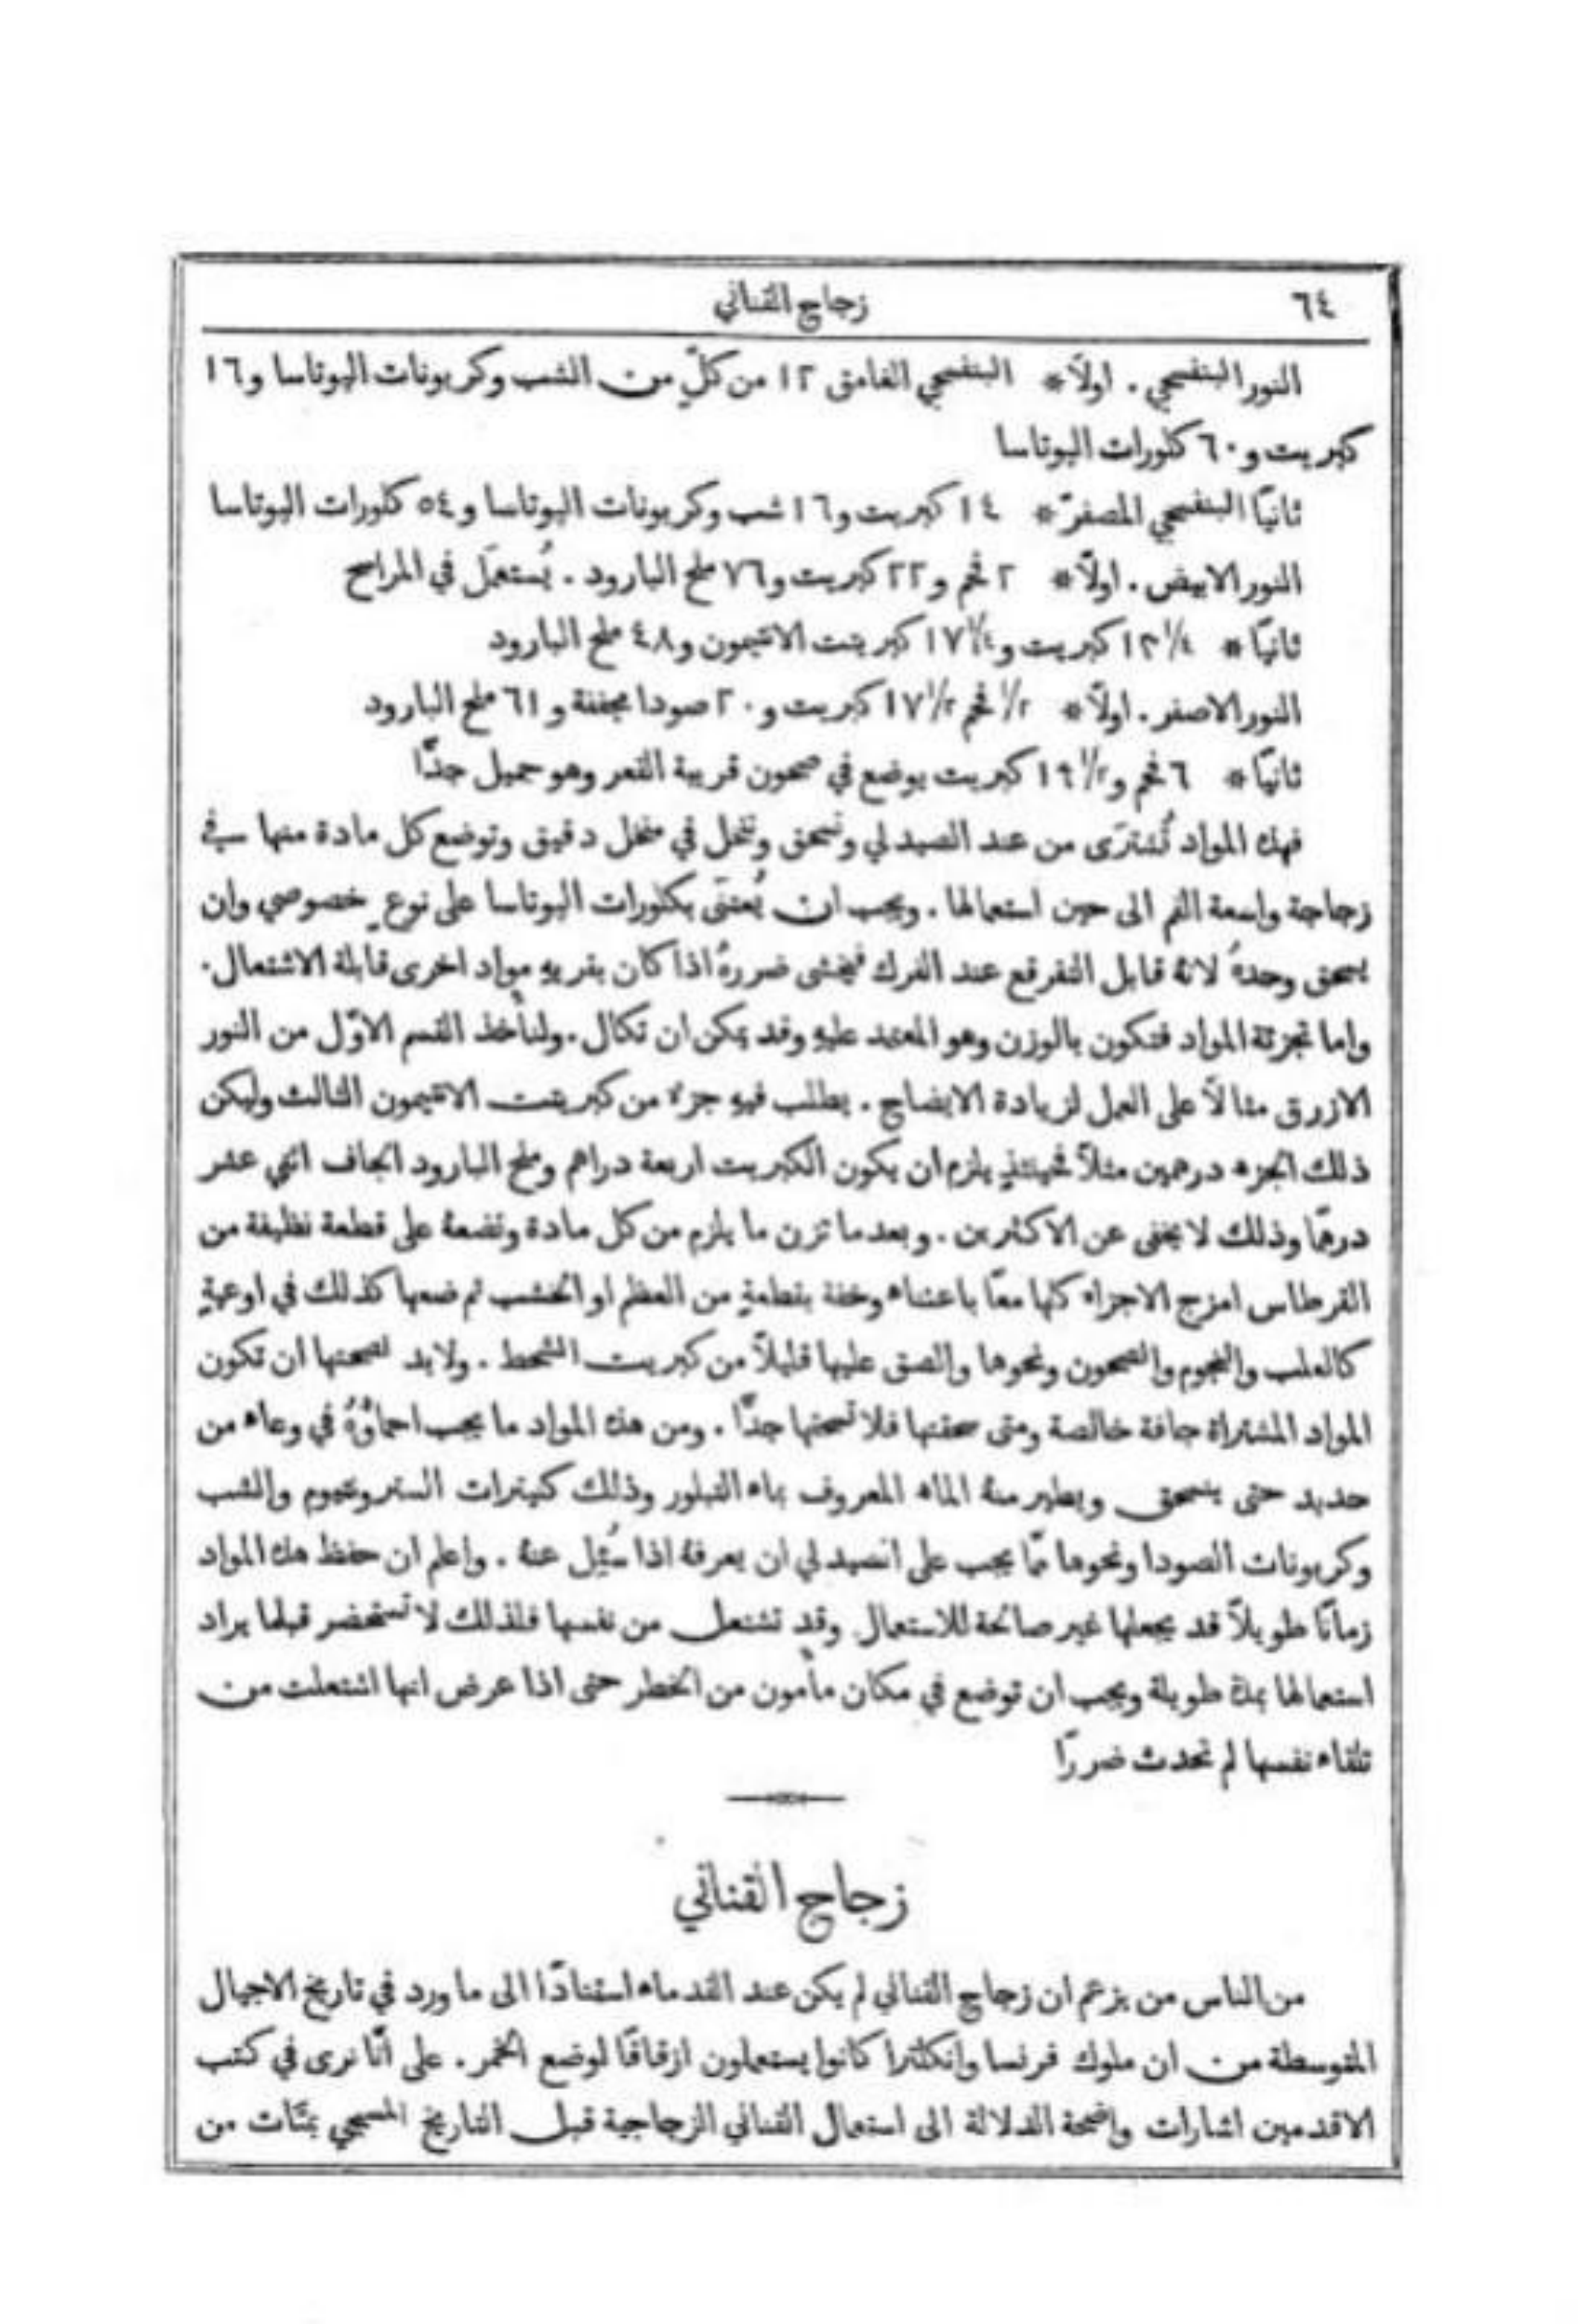 ٦٤
زجاج القناني
النور البنفسجي . اولاً * البنفسجي الغامق ١٢ من كلٍّ من الشب وكربونات البوتاسا و١٦
كبريت و٦٠ كلورات البوتاسا
ثانيًا البنفسجي المصفرّ * ١٤ كبريت و١٦ شب وكربونات البوتاسا و٥٤ كلورات البوتاسا
النور الابيض . اولاً * ٢ فحم و٢٢ كبريت و٧٦ ملح البارود . يُستعمَل في المراسح
ثانيًا * ١/٤ ١٢ كبريت و١/٤ ١٧ كبريتت الانتيمون و٤٨ ملح البارود
النور الاصفر . اولاً * ١/٢ فحم ١/٢ ١٧ كبريت و٢٠ صودا مجففة و٦١ ملح البارود
ثانيًا * ٦ فحم و١/٢ ١٩ كبريت يوضع في صحون قريبة القعر وهو جميل جدًّا
فهذه المواد تُشترَى من عند الصيدلي وتسحق وتنخل في منخل دقيق وتوضع كل مادة منها في
زجاجة واسعة الفم الى حين استعمالها . ويجب ان يُعتنَى بكلورات البوتاسا على نوعٍ خصوصي وان
يسحق وحدهُ لانهُ قابل التفرقع عند الفرك فيخشى ضررهُ اذا كان بقربهِ مواد اخرى قابلة الاشتعال .
واما تجزئة المواد فتكون بالوزن وهو المعتمد عليهِ وقد يمكن ان تكال . ولنأخذ القسم الاوّل من النور
الازرق مثالاً على العمل لزيادة الايضاح . يطلب فيهِ جزء من كبريتت الانتيمون الثالث وليكن
ذلك الجزء درهمين مثلاً فحينئذٍ يلزم ان يكون الكبريت اربعة دراهم وملح البارود الجاف اثني عشر
درهمًا وذلك لا يخفى عن الاكثرين . وبعد ما تزن ما يلزم من كل مادة وتضعهُ على قطعة نظيفة من
القرطاس امزج الاجزاء كلها معًا باعتناء وخفة بقطعةٍ من العظم او الخشب ثم ضعها كذلك في اوعيةٍ
كالعلب والنجوم والصحون ونحوها والصق عليها قليلاً من كبريت الشحط . ولابد لصحتها ان تكون
المواد المشتراة جافة خالصة ومتى سحقتها فلا تسحقها جدًّا . ومن هذه المواد ما يجب احماؤُهُ في وعاء من
حديد حتى ينسحق ويطير منهُ الماء المعروف بماء التبلور وذلك كنيترات السترونتيوم والشب
وكربونات الصودا ونحوها ممّا يجب على الصيدلي ان يعرفهُ اذا سُئِل عنهُ . واعلم ان حفظ هذه المواد
زمانًا طويلاً قد يجعلها غير صالحة للاستعمال وقد تشتعل من نفسها فلذلك لا تستحضر قبلما يراد
استعمالها بمدة طويلة ويجب ان توضع في مكان مأمون من الخطر حتى اذا عرض انها اشتعلت من
تلقاء نفسها لم تحدث ضررًا
زجاج القناني
من الناس من يزعم ان زجاج القناني لم يكن عند القدماء استنادًا الى ما ورد في تاريخ الاجيال
المتوسطة من ان ملوك فرنسا وانكلترا كانوا يستعملون ازقاقًا لوضع الخمر . على أنّا نرى في كتب
الاقدمين اشارات واضحة الدلالة الى استعمال القناني الزجاجية قبل التاريخ المسيحي بمئات من